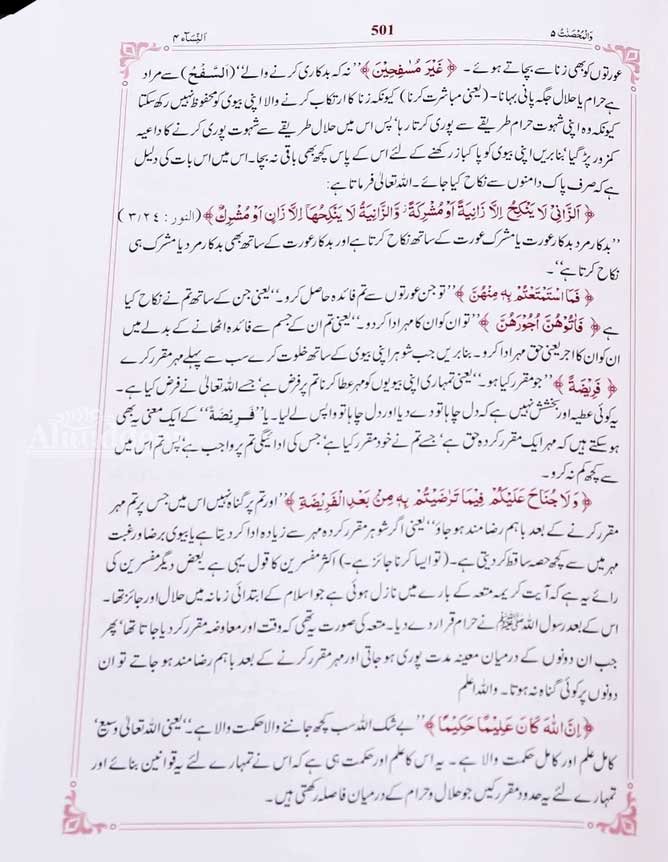 وَالْمُحْصَنٰتُ ۵ 501 اَلنِّسَآء ۴
عورتوں کو بھی زنا سے بچاتے ہوئے۔ ﴿ غَیْرَ مُسٰفِحِیْنَ ﴾ ’’نہ کہ بدکاری کرنے والے‘‘ (اَلسَّفْحُ) سے مراد
ہے حرام یا حلال جگہ پانی بہانا۔ (یعنی مباشرت کرنا) کیونکہ زنا کا ارتکاب کرنے والا اپنی بیوی کو محفوظ نہیں رکھ سکتا
کیونکہ وہ اپنی شہوت حرام طریقے سے پوری کرتا رہا‘ پس اس میں حلال طریقے سے شہوت پوری کرنے کا داعیہ
کمزور پڑ گیا‘ بنابریں اپنی بیوی کو پاکباز رکھنے کے لئے اس کے پاس کچھ بھی باقی نہ بچا۔ اس میں اس بات کی دلیل
ہے کہ صرف پاک دامنوں سے نکاح کیا جائے۔ اللہ تعالیٰ فرماتا ہے:
﴿ اَلزَّانِیْ لَا یَنْكِحُ اِلَّا زَانِیَةً اَوْ مُشْرِكَةً وَّالزَّانِیَةُ لَا یَنْكِحُهَاۤ اِلَّا زَانٍ اَوْ مُشْرِكٌ ﴾ (النور : ۳/۲۴)
’’بدکار مرد بدکار عورت یا مشرک عورت کے ساتھ نکاح کرتا ہے اور بدکار عورت کے ساتھ بھی بدکار مرد یا مشرک ہی
نکاح کرتا ہے‘‘۔
﴿ فَمَا اسْتَمْتَعْتُمْ بِهٖ مِنْهُنَّ ﴾ ’’تو جن عورتوں سے تم فائدہ حاصل کرو۔‘‘ یعنی جن کے ساتھ تم نے نکاح کیا
ہے ﴿ فَاٰتُوْهُنَّ اُجُوْرَهُنَّ ﴾ ’’تو ان کو ان کا مہر ادا کر دو۔‘‘ یعنی تم ان کے جسم سے فائدہ اٹھانے کے بدلے میں
ان کو ان کا اجر یعنی حق مہر ادا کرو۔ بنابریں جب شوہر اپنی بیوی کے ساتھ خلوت کرے سب سے پہلے مہر مقرر کرے
﴿ فَرِیْضَةً ﴾ ’’جو مقرر کیا ہو۔‘‘ یعنی تمہاری اپنی بیویوں کو مہر عطا کرنا تم پر فرض ہے‘ جسے اللہ تعالیٰ نے فرض کیا ہے۔
یہ کوئی عطیہ اور بخشش نہیں ہے کہ دل چاہا تو دے دیا اور دل چاہا تو واپس لے لیا۔ یا ’’فَرِیْضَةً‘‘ کے ایک معنی یہ بھی
ہو سکتے ہیں کہ مہر ایک مقرر کردہ حق ہے‘ جسے تم نے خود مقرر کیا ہے‘ جس کی ادائیگی تم پر واجب ہے‘ پس تم اس میں
سے کچھ کم نہ کرو۔
﴿ وَلَا جُنَاحَ عَلَیْكُمْ فِیْمَا تَرٰضَیْتُمْ بِهٖ مِنْۢ بَعْدِ الْفَرِیْضَةِ ﴾ ’’اور تم پر گناہ نہیں اس میں جس پر تم مہر
مقرر کرنے کے بعد باہم رضا مند ہو جاؤ‘‘ یعنی اگر شوہر مقرر کردہ مہر سے زیادہ ادا کر دیتا ہے یا بیوی برضا و رغبت
مہر میں سے کچھ حصہ ساقط کر دیتی ہے۔ (تو ایسا کرنا جائز ہے۔) اکثر مفسرین کا قول یہی ہے بعض دیگر مفسرین کی
رائے یہ ہے کہ آیت کریمہ متعہ کے بارے میں نازل ہوئی ہے جو اسلام کے ابتدائی زمانہ میں حلال اور جائز تھا۔
اس کے بعد رسول اللہ ﷺ نے حرام قرار دے دیا۔ متعہ کی صورت یہ تھی کہ وقت اور معاوضہ مقرر کر دیا جاتا تھا‘ پھر
جب ان دونوں کے درمیان معینہ مدت پوری ہو جاتی اور مہر مقرر کرنے کے بعد باہم رضا مند ہو جاتے تو ان
دونوں پر کوئی گناہ نہ ہوتا۔ واللہ اعلم
﴿ اِنَّ اللّٰهَ كَانَ عَلِیْمًا حَكِیْمًا ﴾ ’’بے شک اللہ سب کچھ جاننے والا حکمت والا ہے۔‘‘ یعنی اللہ تعالیٰ وسیع‘
کامل علم اور کامل حکمت والا ہے۔ یہ اس کا علم اور حکمت ہی ہے کہ اس نے تمہارے لئے یہ قوانین بنائے اور
تمہارے لئے یہ حدود مقرر کیں جو حلال و حرام کے درمیان فاصلہ رکھتی ہیں۔